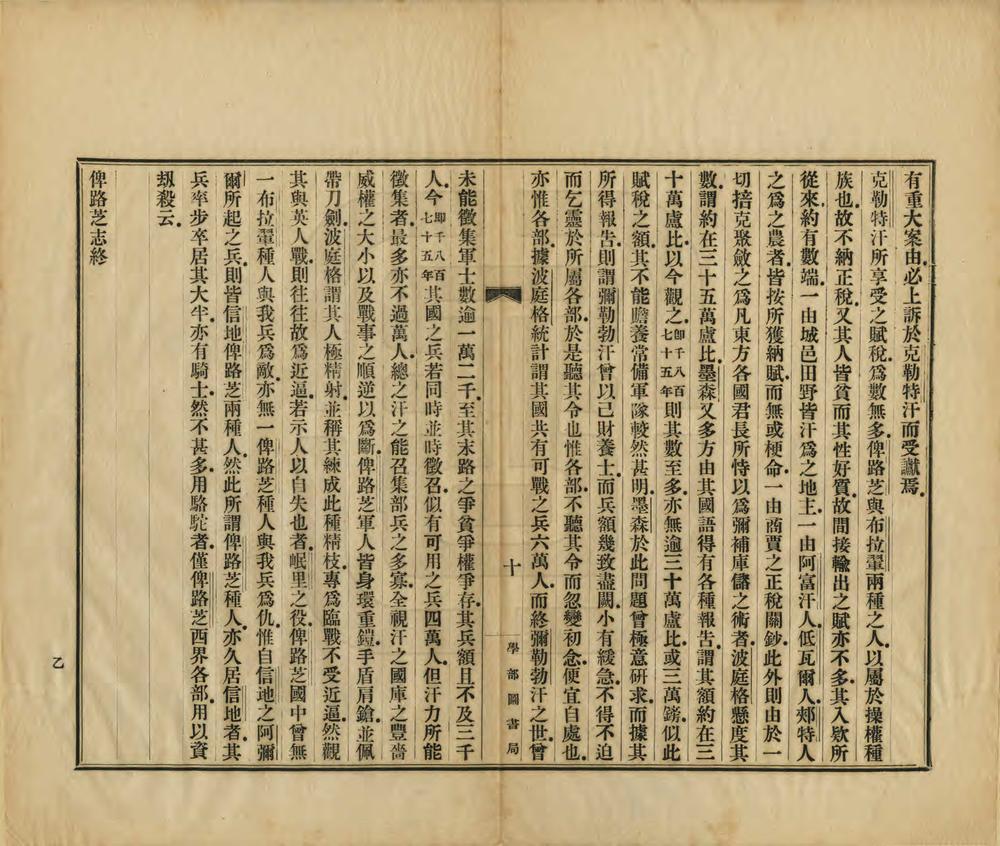 有重大案由必上訴於克勒特汗而受讞焉
克勒特汗所享受之賦稅爲數無多俾路芝與布拉翬兩種之人以屬於操權種
族也故不納正稅又其人皆貧而其性好質故間接輸出之賦亦不多其入欵所
從來約有數端一由城邑田野皆汗爲之地主一由阿富汗人低瓦爾人郟特人
之爲之農者皆按所獲納賦而無或梗命一由商賈之正稅關鈔此外則由於一
切掊克聚斂之爲凡東方各國君長所恃以爲彌補庫儲之術者波庭格懸度其
數謂約在三十五萬盧比墨森又多方由其國語得有各種報告謂其額約在三
十萬盧比以今觀之卽千八百七十五年則其數至多亦無逾三十萬盧比或三萬鎊似此
賦稅之額其不能贍養常備軍隊較然甚明墨森於此問題曾極意研求而據其
所得報告則謂彌勒勃汗曾以己財養士而兵額幾致盡闕小有緩急不得不迫
而乞靈於所屬各部於是聽其令也惟各部不聽其令而忽變初念便宜自處也
亦惟各部據波庭格統計謂其國共有可戰之兵六萬人而終彌勒勃汗之世曾
十
學部圖書局
未能徵集軍士數逾一萬二千至其末路之爭貧爭權爭存其兵額且不及三千
人今卽千八百七十五年其國之兵若同時並時徵召似有可用之兵四萬人但汗力所能
徵集者最多亦不過萬人總之汗之能召集部兵之多寡全視汗之國庫之豐嗇
威權之大小以及戰事之順逆以爲斷俾路芝軍人皆身環重鎧手盾肩鎗並佩
帶刀劍波庭格謂其人極精射並稱其練成此種精枝專爲臨戰不受近逼然觀
其與英人戰則往往故爲近逼若示人以自失也者岷里之役俾路芝國中曾無
一布拉翬種人與我兵爲敵亦無一俾路芝種人與我兵爲仇惟自信地之阿彌
爾所起之兵則皆信地俾路芝兩種人然此所謂俾路芝種人亦久居信地者其
兵率步卒居其大半亦有騎士然不甚多用駱駝者僅俾路芝西界各部用以資
刼殺云
俾路芝志終
乙